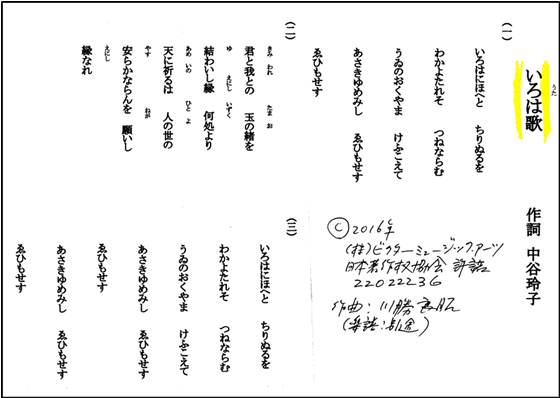 いろは歌
うた
作詞 中谷玲子
(一)
いろはにほへと ちりぬるを
わかよたれそ つねならむ
うゐのおくやま けふこえて
あさきゆめみし ゑひもせす
ゑひもせす
(二)
君と我との 玉の緒を
きみ われ たま お
結わいし縁 何処より
ゆ えにし いずく
天に祈るは 人の世の
あめ いの ひと よ
安らかならんを 願いし
やす ねが
縁なれ
えにし
(三)
いろはにほへと ちりぬるを
わかよたれそ つねならむ
うゐのおくやま けふこえて
あさきゆめみし ゑひもせす
ゑひもせす
あさきゆめみし ゑひもせす
ゑひもせす
© 2016年
(株)ビクターミュージックアーツ
日本著作权協会 許諾
22022236
作曲:川勝